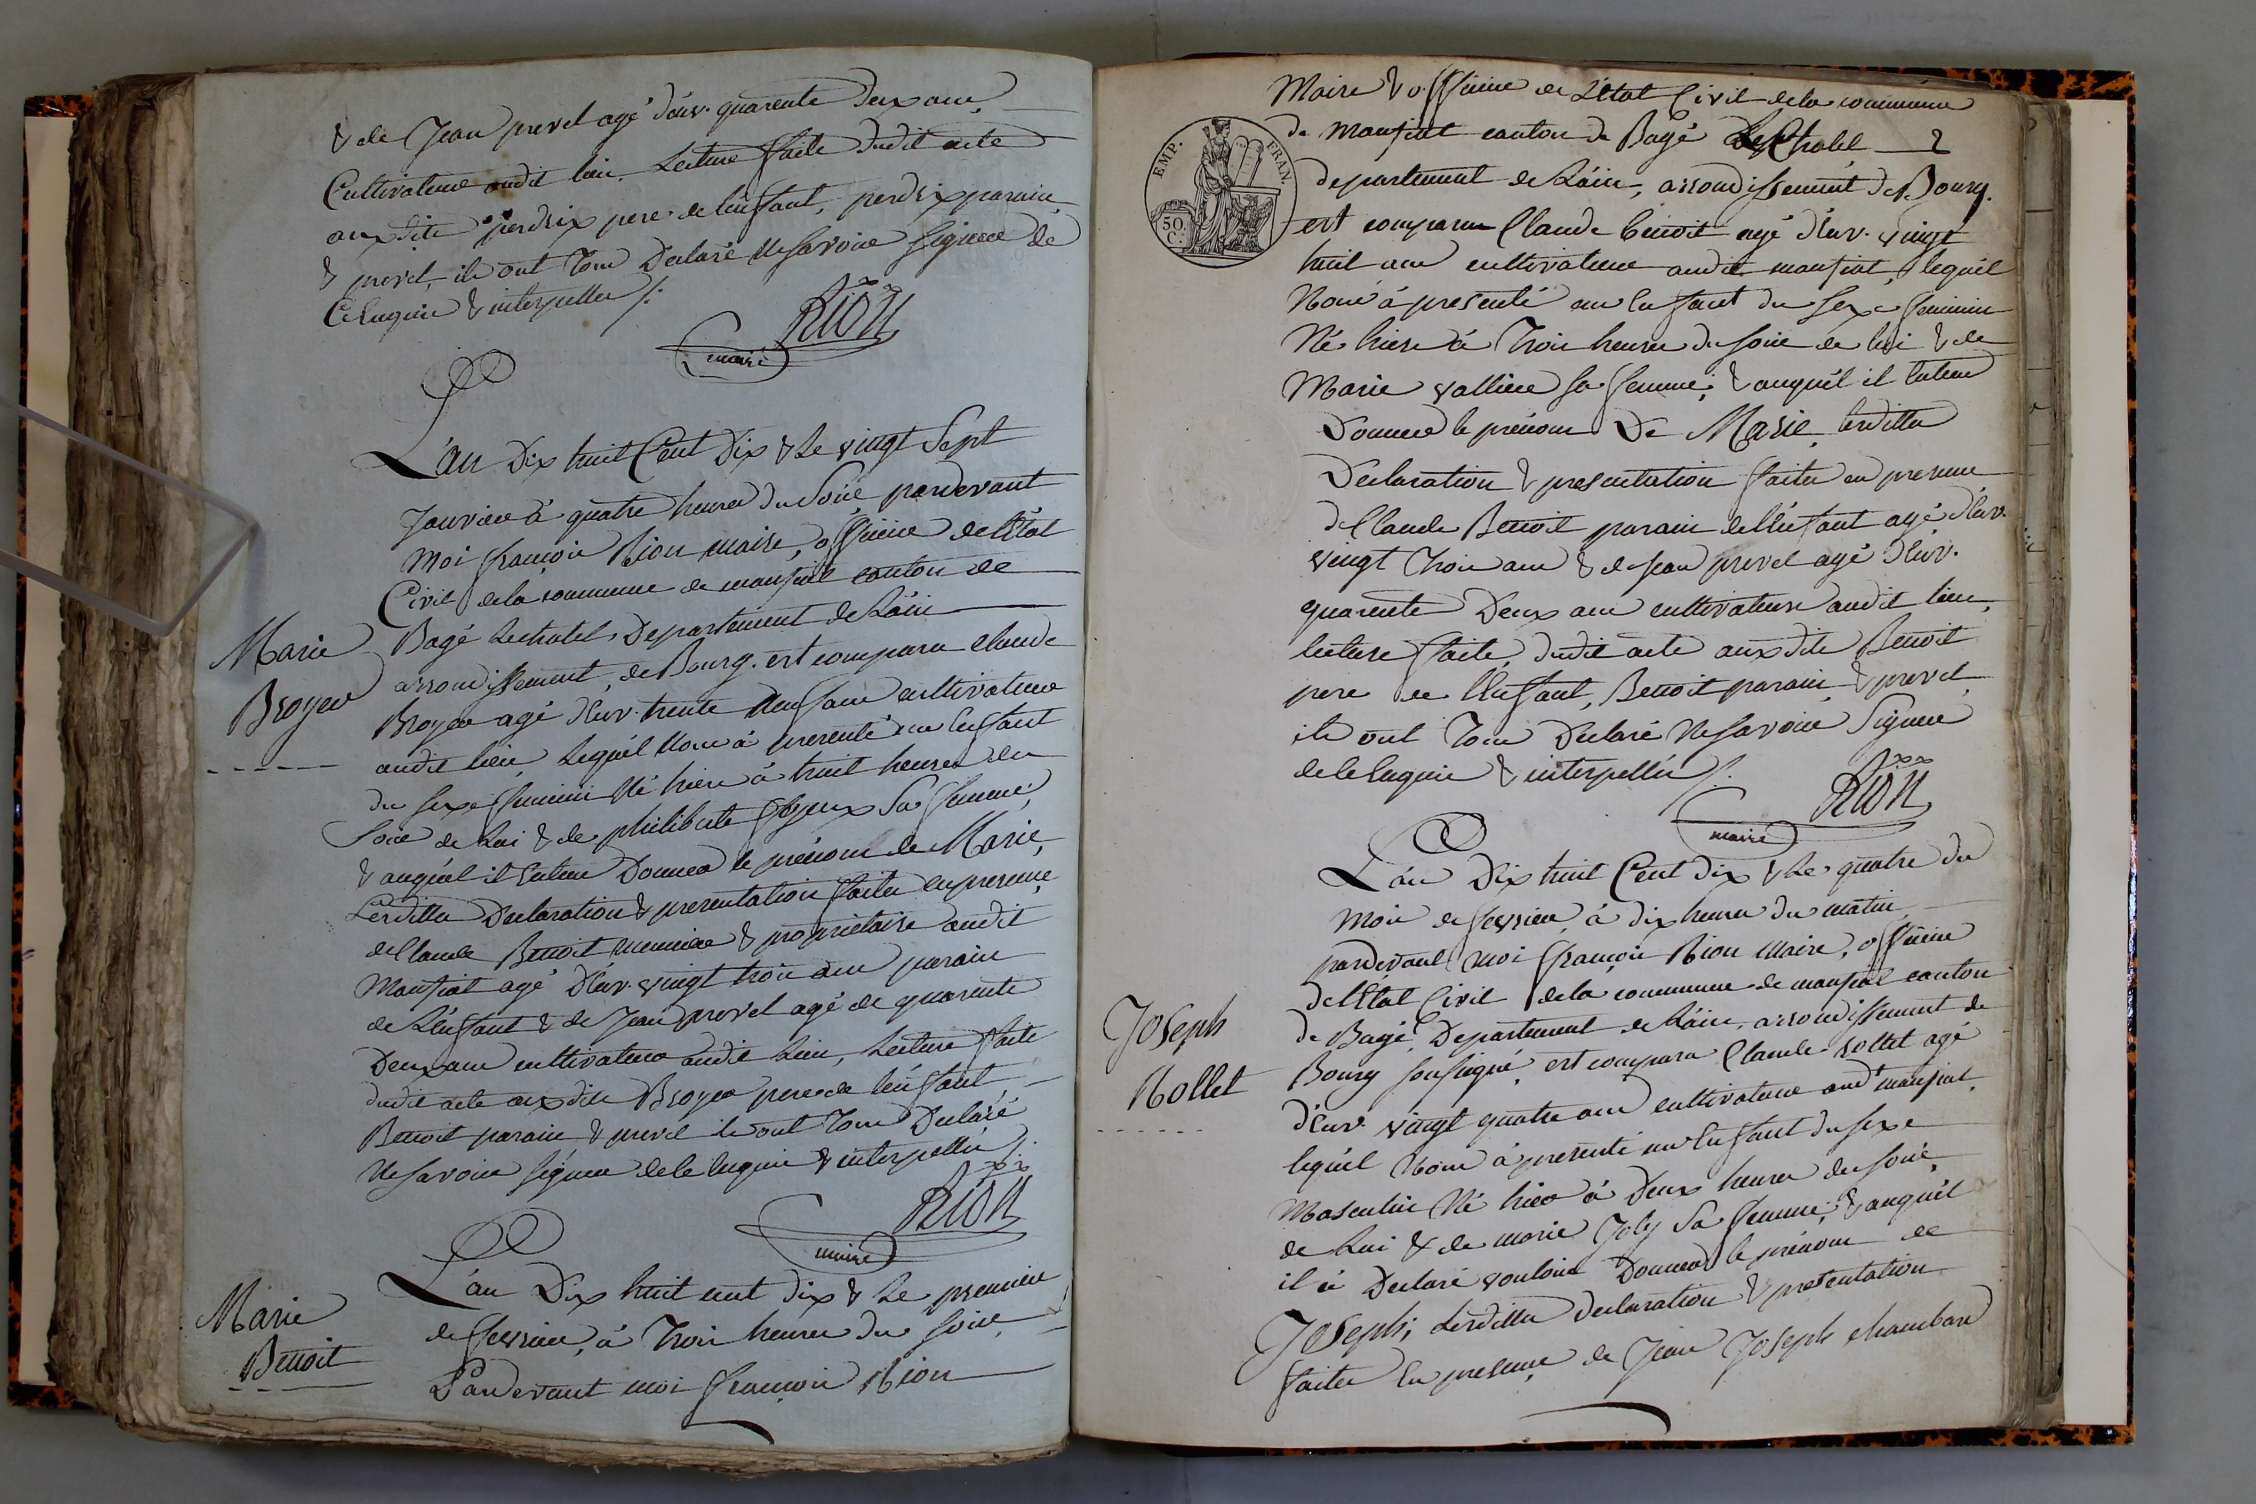 & de Jean prevel agé d'env. quarente deux ans
Cultivateur audit lieu. Lecture faite dudit acte
auxdits perdrix pere de l'enfant, perdrix parain
& prevel, ils ont tous Déclaré ne savoir signer de
Ce Enquis & interpellés /:
Rion
maire
L'an Dix huit Cent Dix & Le vingt Sept
Janvier à quatre heures du Soir, pardevant
Moi françois Rion maire, officier de l'Etat
Civil de la commune de mansiat canton de
Bagé Lechatel, Departement de L'ain
arrondissement, de Bourg. est comparu claude
Broyer agé d'env. trente neuf ans cultivateur
audit lieu, Lequel nous à presenté un Enfant
du sexe feminin Né hier à huit heures du
Soir de Lui & de philiberte sa femme,
& auquel il Entend Donner le prénom de Marie,
Lesdittes Declaration & presentation faites en presence
de Claude Benoit meunier & propriétaire audit
Mansiat agé D'env. vingt trois ans parain
de L'enfant & de Jean prevel agé de quarente
Deux ans cultivateur audit Lieu, Lecture faite
dudit acte auxdits Broyer pere de l'enfant
Benoit parain, & prevel ils ont Tous Declaré
Ne savoir signer de ce enquis & interpellés /:
Rion
maire
Marie
Broyer
L'an Dix huit cent dix & Le premier
de fevrier, à Trois heures du soir,
Pardevant moi françois Rion
Marie
Benoit
Maire & officier de L'état Civil de la commune
de Mansiat canton de Bagé Le Chatel
departement de L'ain, arrondissement de Bourg.
EMP. FRAN.
50 C.
est comparu Claude benoit agé d'env. vingt
huit ans cultivateur audit mansiat, lequel
Nous à presenté un Enfant du sexe feminin
Né hier à Trois heures du soir de lui & de
Marie vallier sa femme, & auquel il Entend
Donner le prénom De Marie, lesdittes
Declaration & presentation faites en presence
de Claude Benoit parain de l'enfant agé d'env.
vingt Trois ans & de Jean prevel agé d'env.
quarente Deux ans cultivateurs audit lieu,
lecture faite, dudit acte auxdits Benoit
pere de l'Enfant, Benoit parain, & prevel,
ils ont Tous Declaré Ne savoir Signer
de ce Enquis & interpellés /.
Rion
maire
L'an Dix huit Cent dix & Le quatre du
mois de fevrier, à dix heures du matin
pardevant moi françois Rion maire, officier
de l'Etat Civil de la commune de mansiat canton
de Bagé, Departement de L'ain, arrondissement de
Bourg soussigné, est comparu Claude rollet agé
d'env. vingt quatre ans cultivateur audt mansiat,
lequel Nous à presenté un Enfant du sexe
Masculin Né hier à Deux heures du soir,
de Lui & de marie Joly Sa femme, & auquel
il à Declaré vouloir Donner le prénom de
Joseph, Lesdittes declaration & presentation
faites En presence de Jean Joseph chambard
Joseph
Rollet